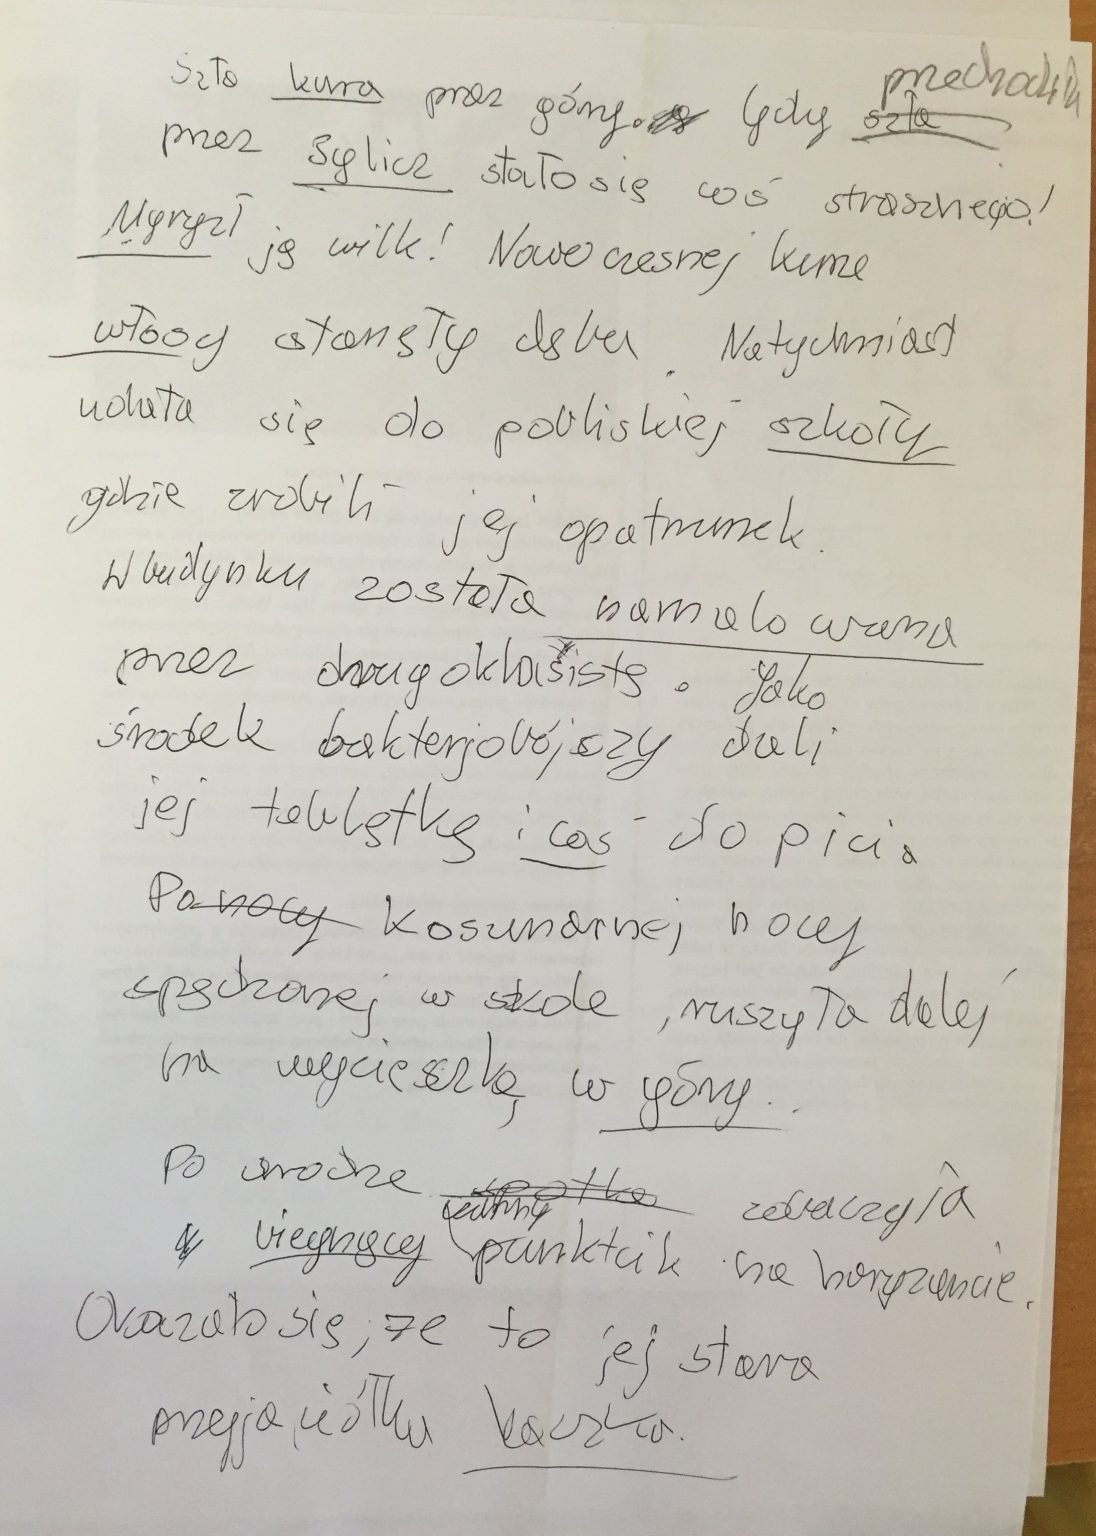 Szła kura przez góry. Gdy szła przechodziła
przez Sylicz stało się coś strasznego!
Ugryzł ją wilk! Nowoczesnej kurze
włosy stanęły dęba. Natychmiast
udała się do pobliskiej szkoły
gdzie zrobili jej opatrunek.
W budynku została namalowana
przez drugoklasistę. Jako
środek bakterjobójszy dali
jej tabletkę i coś do picia.
Po nocy koszmarnej nocy
spędzonej w skole, ruszyła dalej
na wycieszkę w góry..
Po drodze spotka zobaczyła
biegnący jedyny punkcik na horyzoncie.
Okazało się, że to jej stara
przyjaciółka kaczka.